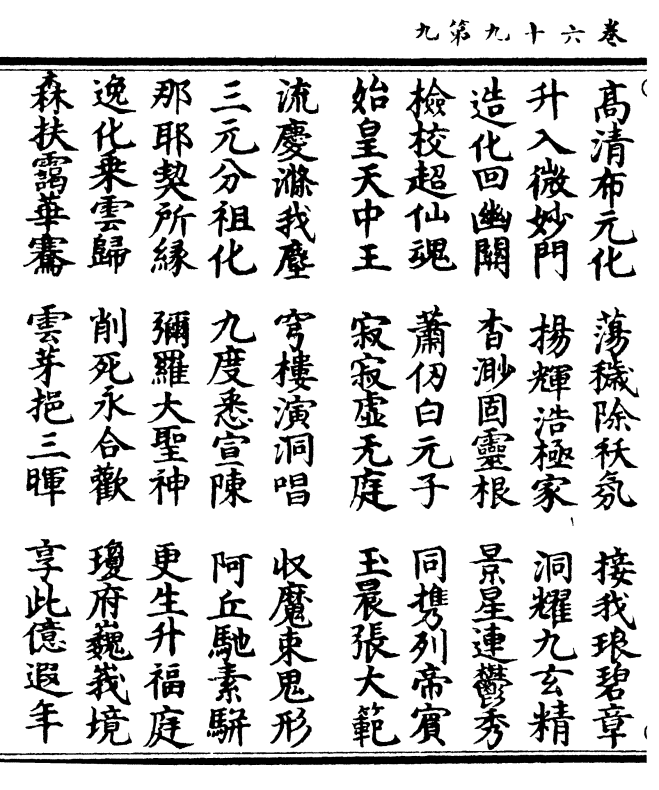 卷六十九第九
高清布元化 蕩穢除秡氛 接我琅碧章
升入微妙門 揚輝浩極家 洞耀九玄精
造化回幽關 杳渺固靈根 景星連鬱秀
檢校超仙魂 蕭仞白元子 同携列帝賓
始皇天中王 寂寂虛无庭 玉晨張大範
流慶滌我塵 穹樓演洞唱 収魔束鬼形
三元分祖化 九度悉宣陳 阿丘馳素駢
那耶契所縁 彌羅大聖神 更生升福庭
逸化乗雲歸 削死永合歡 瓊府巍峩境
森扶靄華騫 雲芽挹三暉 享此億遐年